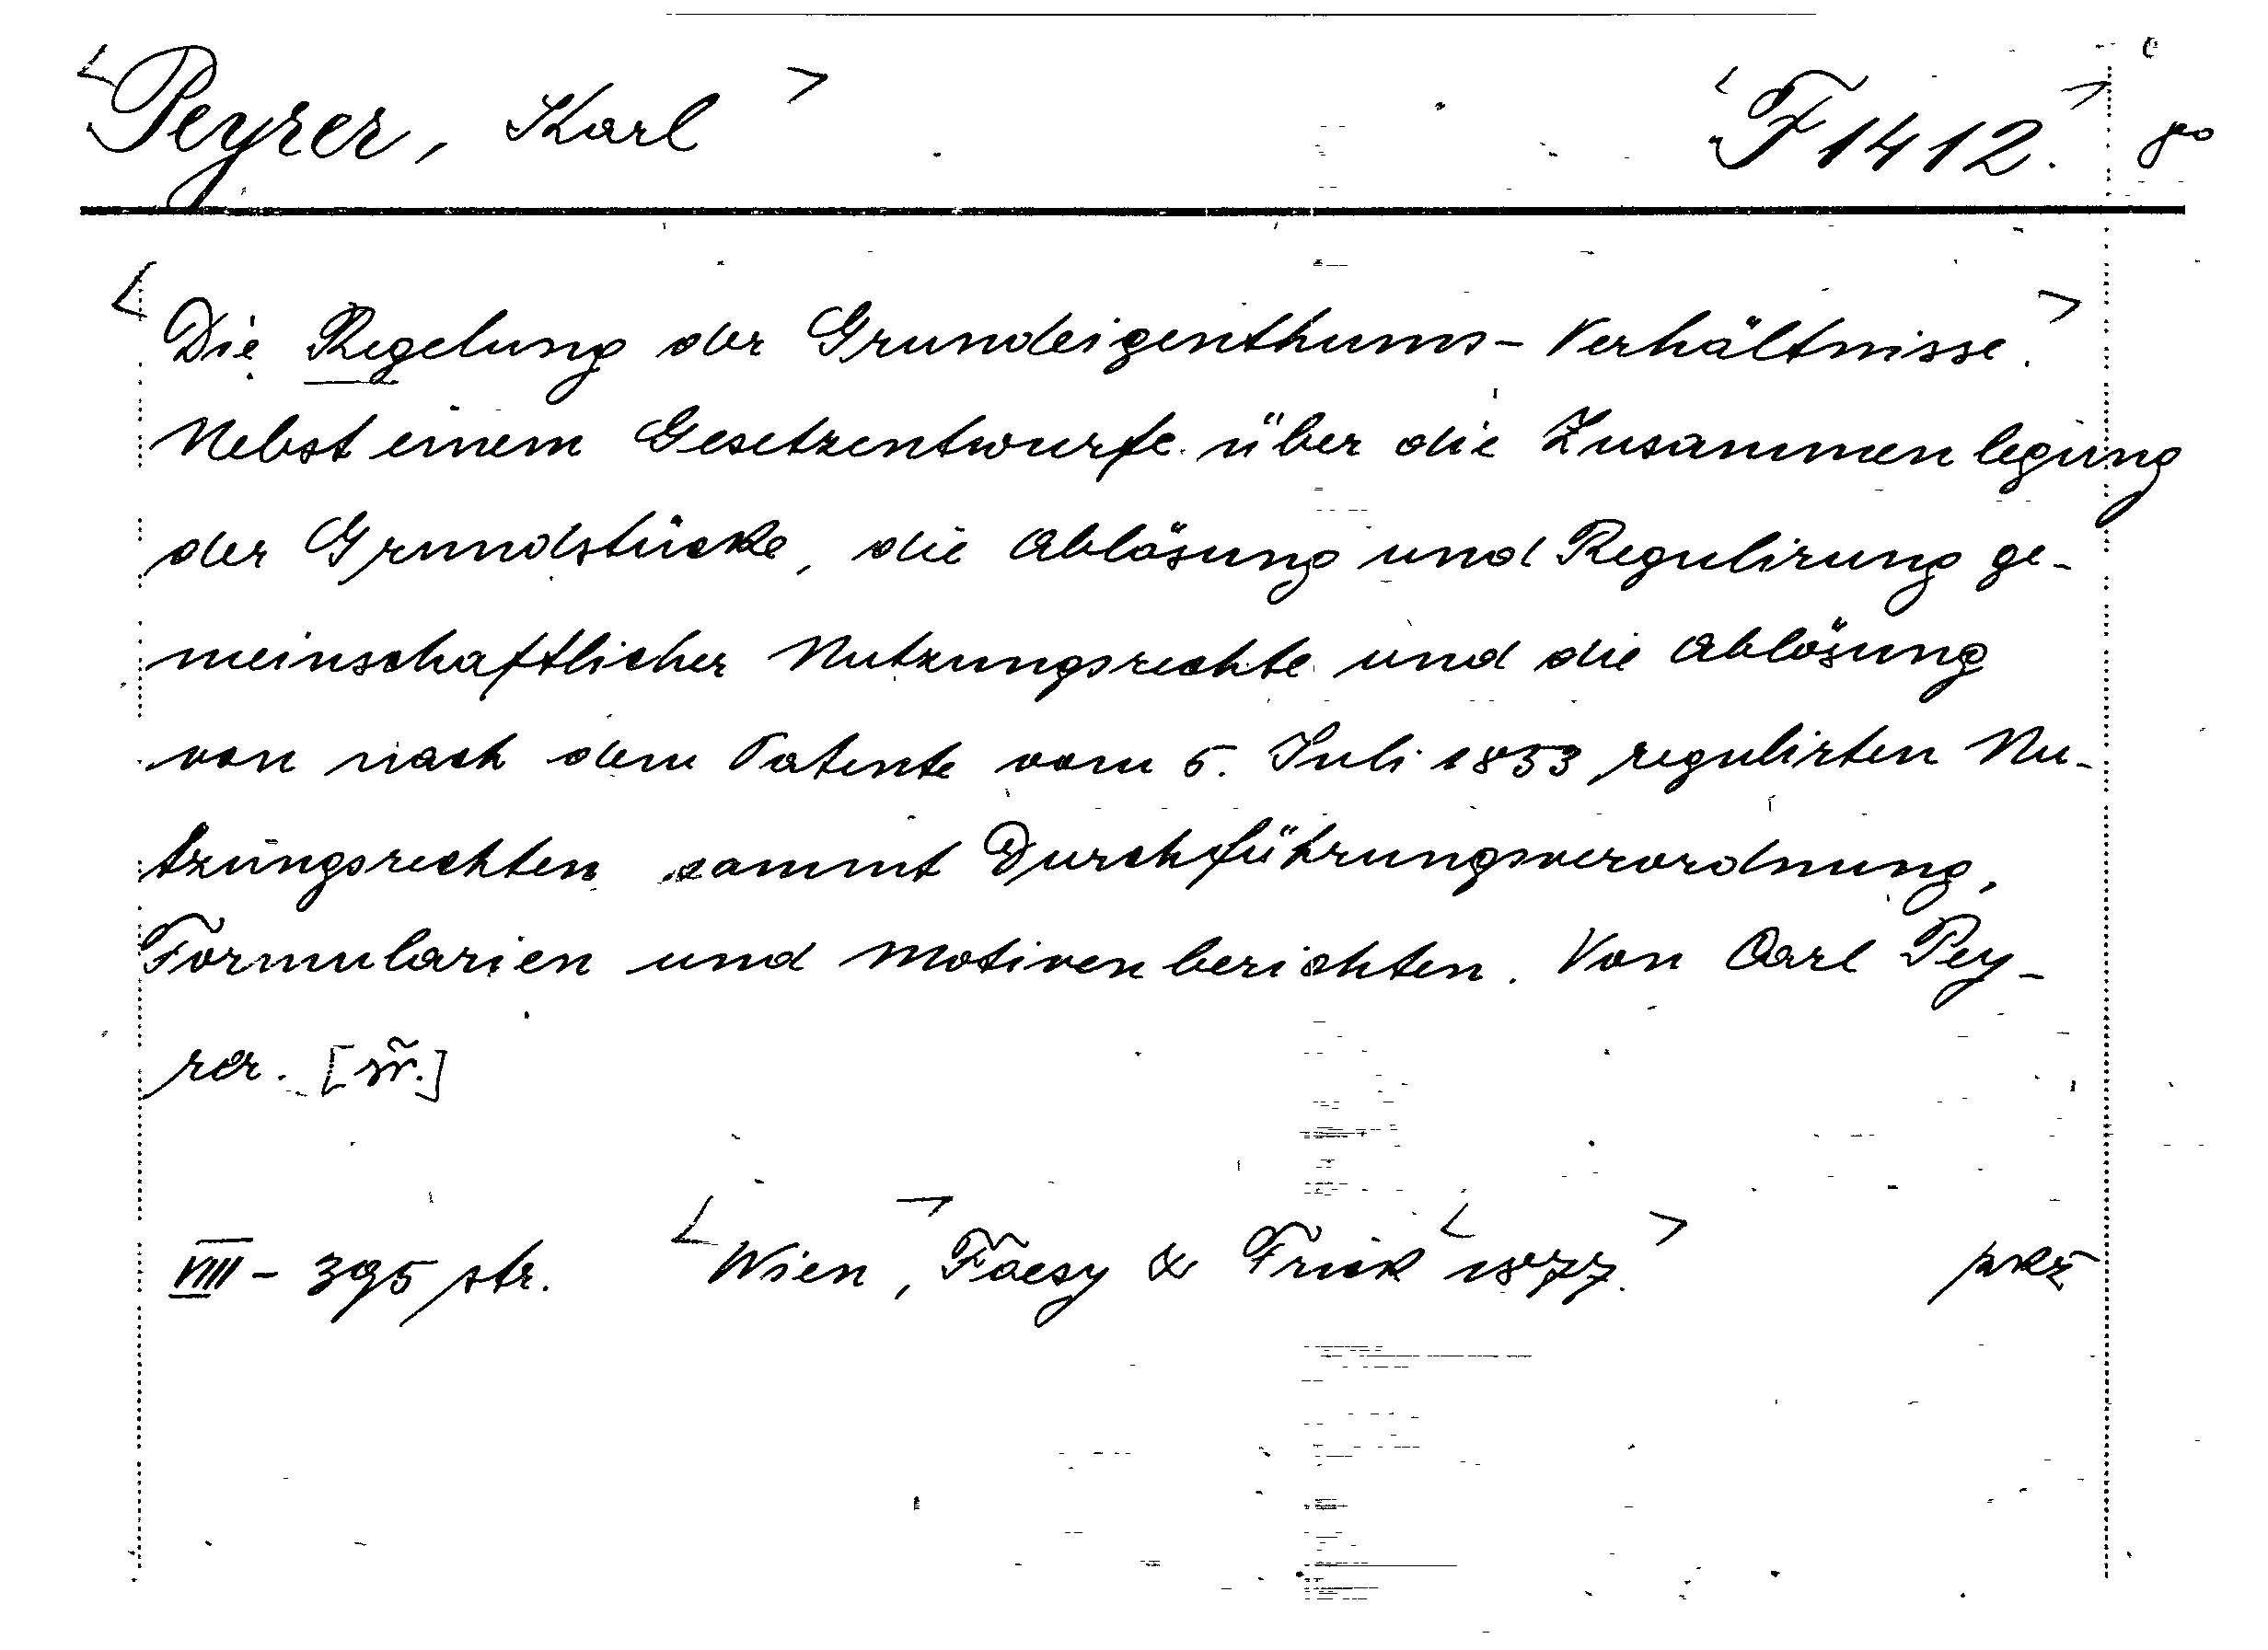 <Peyrer, Karl> <F 1412.>
Die Regelung der Grundeigenthums-Verhältnisse.>
Nebst einem Gesetzentwurfe über die Zusammenlegung
der Grundstücke, die Ablösung und Regulirung ge-
meinschaftlicher Nutzungsrechte und die Ablösung
von nach dem Patente vom 5. Juli 1853 regulirten Nu-
tzungsrechten sammt Durchführungsverordnung,
Formularien und Motivenberichten. Von Carl Pey-
rer.
VIII - 395 str. <Wien,> Faesy & Frick <1877.>